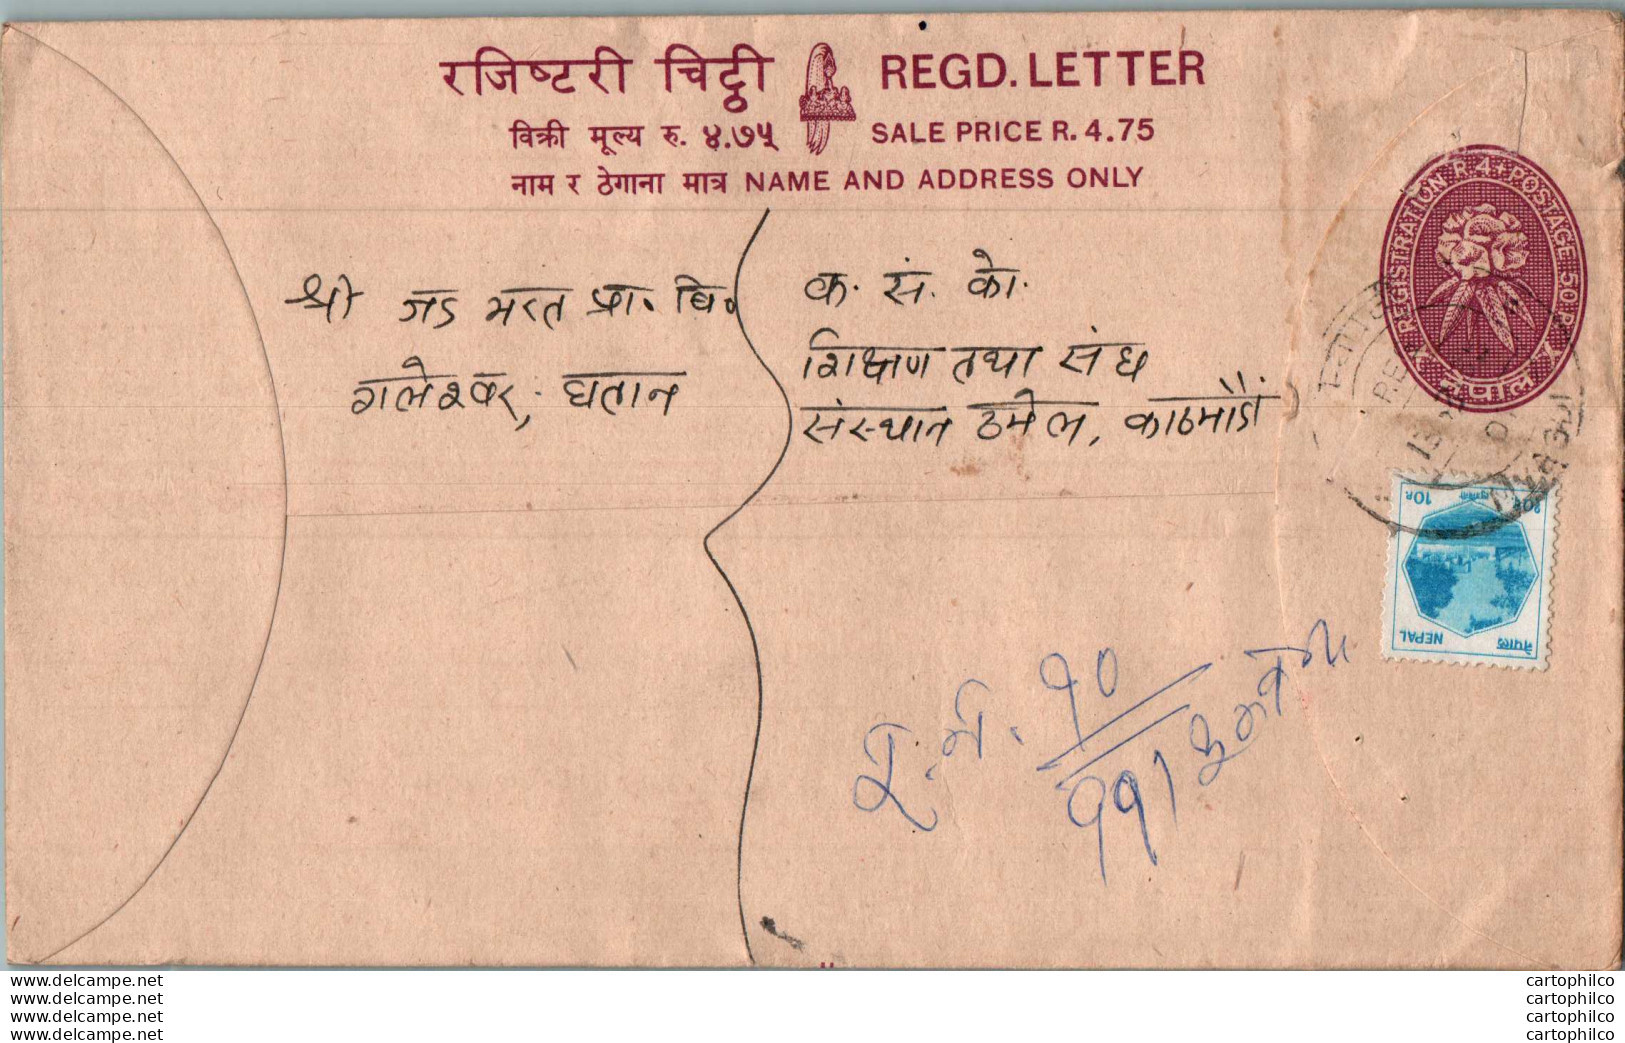 रजिष्टरी चिट्ठी REGD. LETTER
विक्री मूल्य रु. ४.७५ SALE PRICE R. 4.75
नाम र ठेगाना मात्र NAME AND ADDRESS ONLY
REGISTRATION R.4 + POSTAGE 50 P.
नेपाल
श्री जड भरत प्रा. वि.
गलेश्वर, घतान
क. सं. को.
शिक्षण तथा संघ
संस्थान ठमेल, काठमाडौं
10P
१०पै
NEPAL
नेपाल
१०
११।
www.delcampe.net
www.delcampe.net
www.delcampe.net
www.delcampe.net
cartophilco
cartophilco
cartophilco
cartophilco